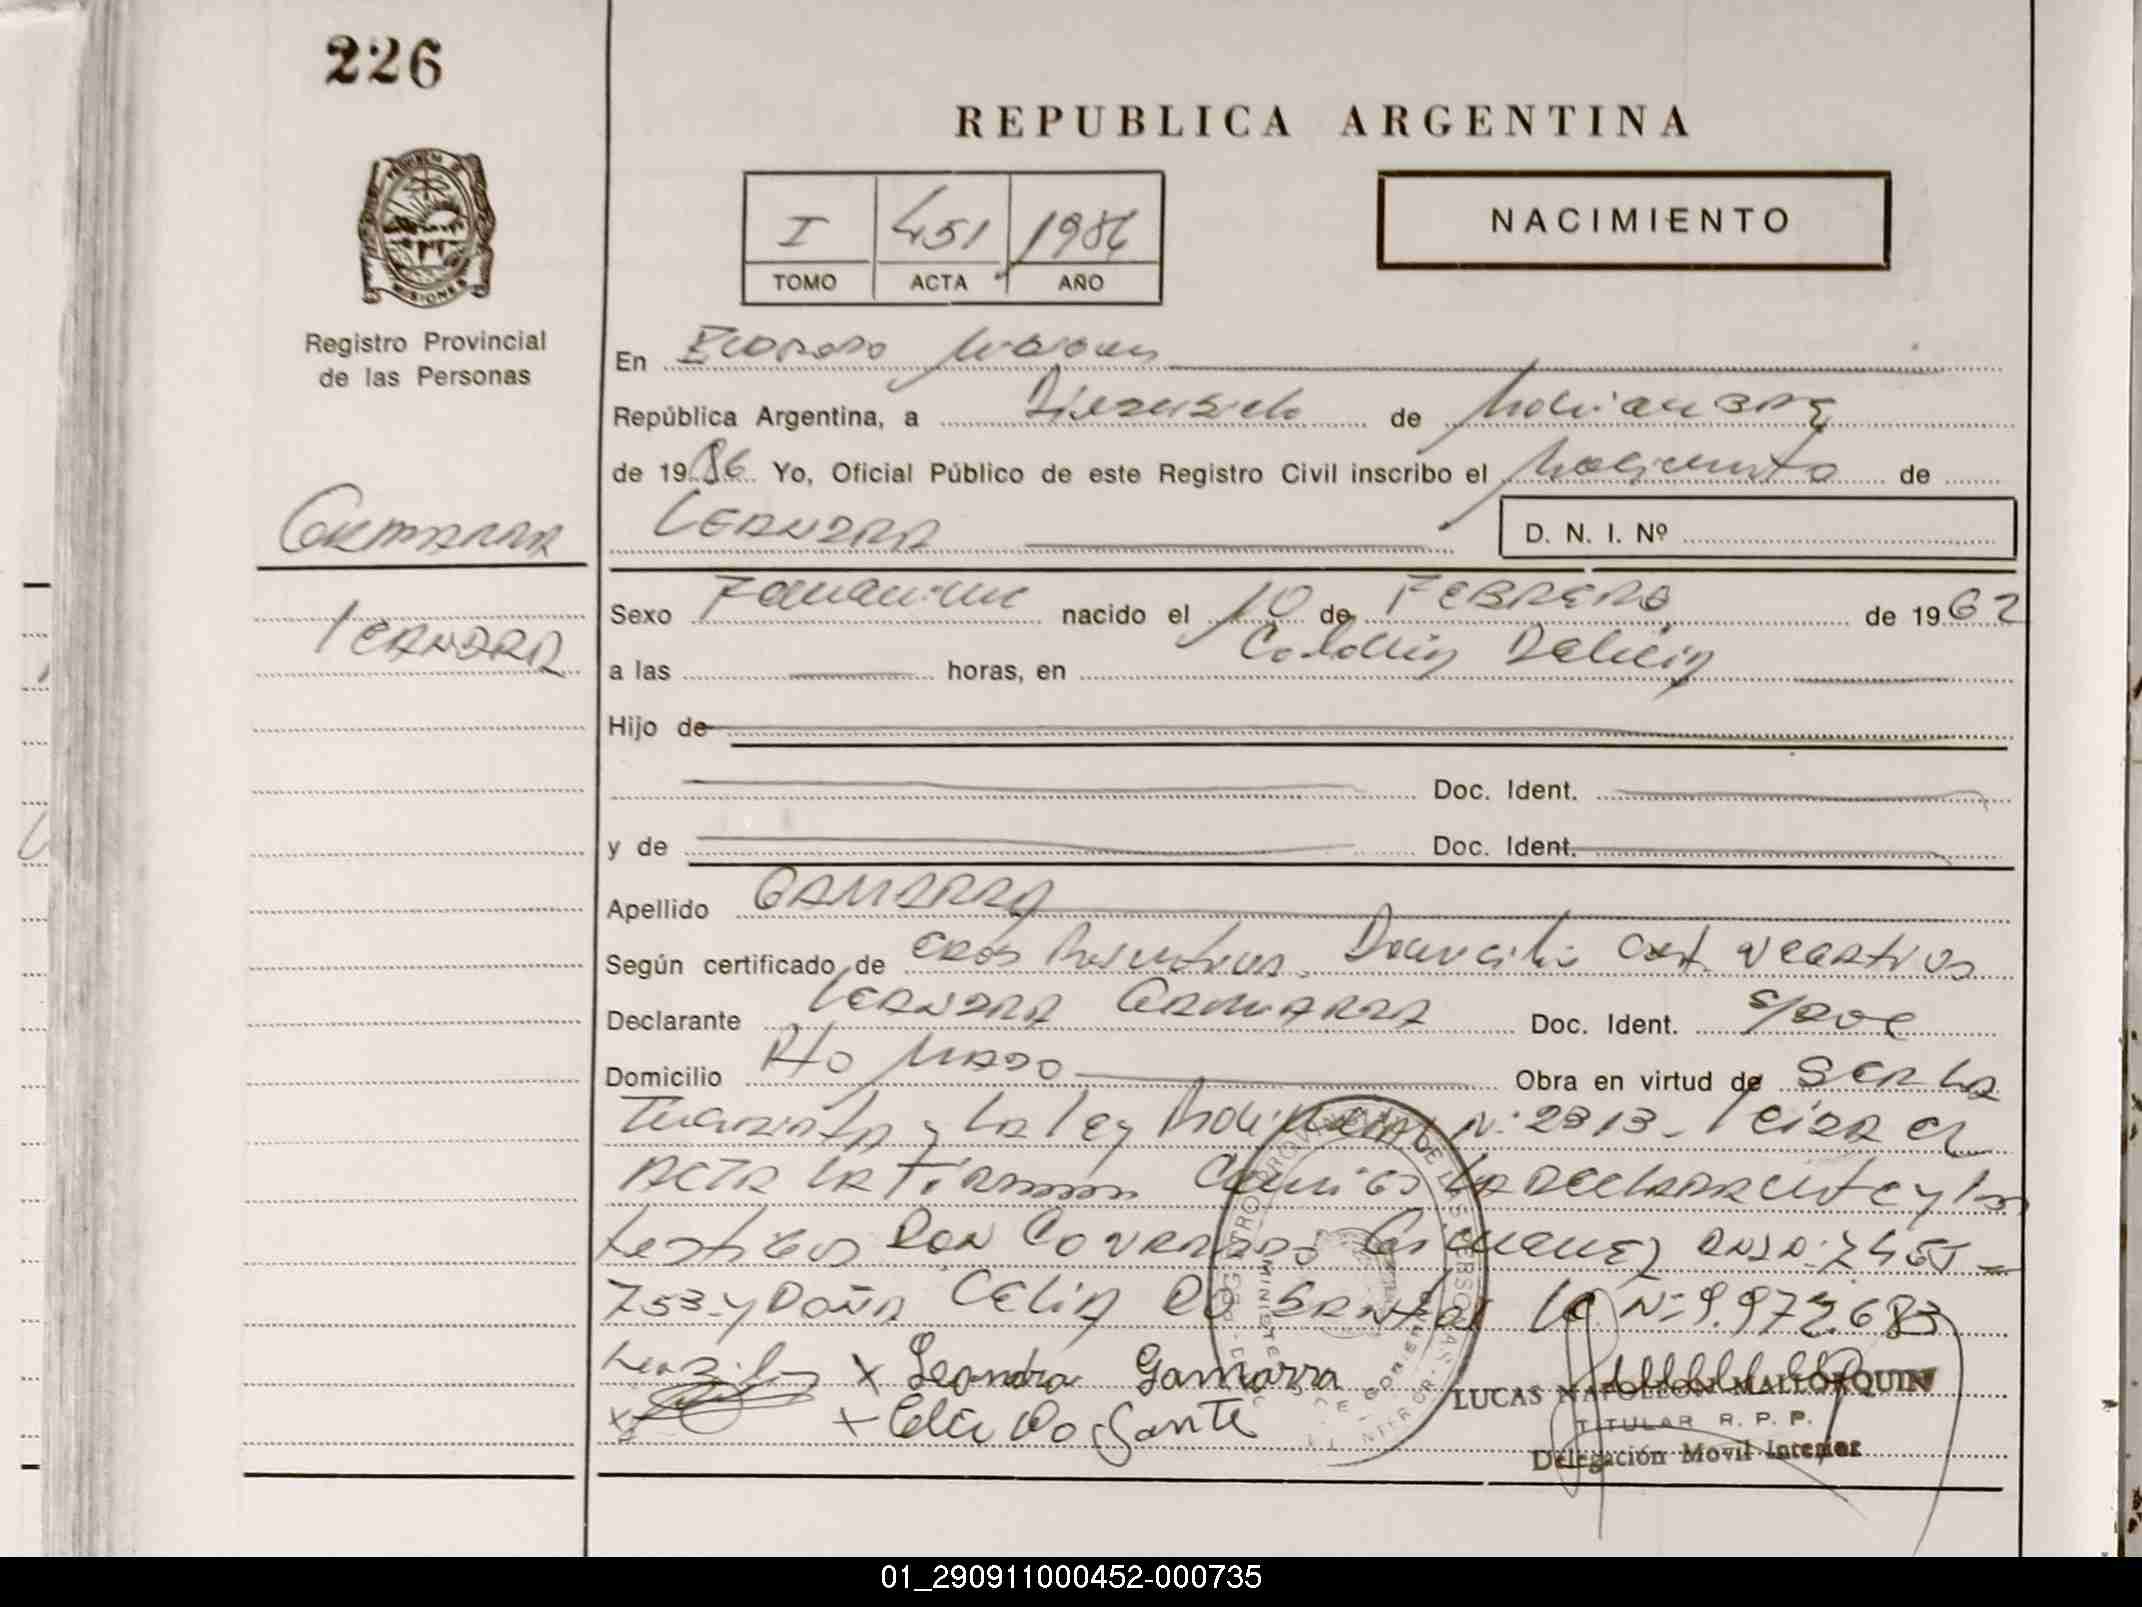 226
REPUBLICA ARGENTINA
NACIMIENTO
I 451 1986
TOMO ACTA AÑO
Registro Provincial
de las Personas
En Eldorado Misiones
República Argentina, a Dieciseis de Noviembre
de 1986 Yo, Oficial Público de este Registro Civil inscribo el Nacimiento de
GAMARRA
LEANDRA
D. N. I. Nº
LEANDRA
Sexo Femenino nacido el 10 de FEBRERO de 1962
a las horas, en Colonia Delicia
Hijo de
Doc. Ident.
y de Doc. Ident.
Apellido GAMARRA
Según certificado de Domicilio Cert. negativos
Declarante LEANDRA GAMARRA Doc. Ident. S/DOC
Domicilio Km Obra en virtud de SER LA
y la ley Provincial Nº 2313. Leida el
ACTA LA Firman Conmigo la declarante y los
testigos DON DNI Nº 7455
753 y DOÑA CELIA DO SANTOS LC Nº 9.972.683
x Leandra Gamarra
x x Celia Do Sante
LUCAS NAPOLEON MALLORQUIN
TITULAR R. P. P.
Delegación Movil Interior
01_290911000452-000735